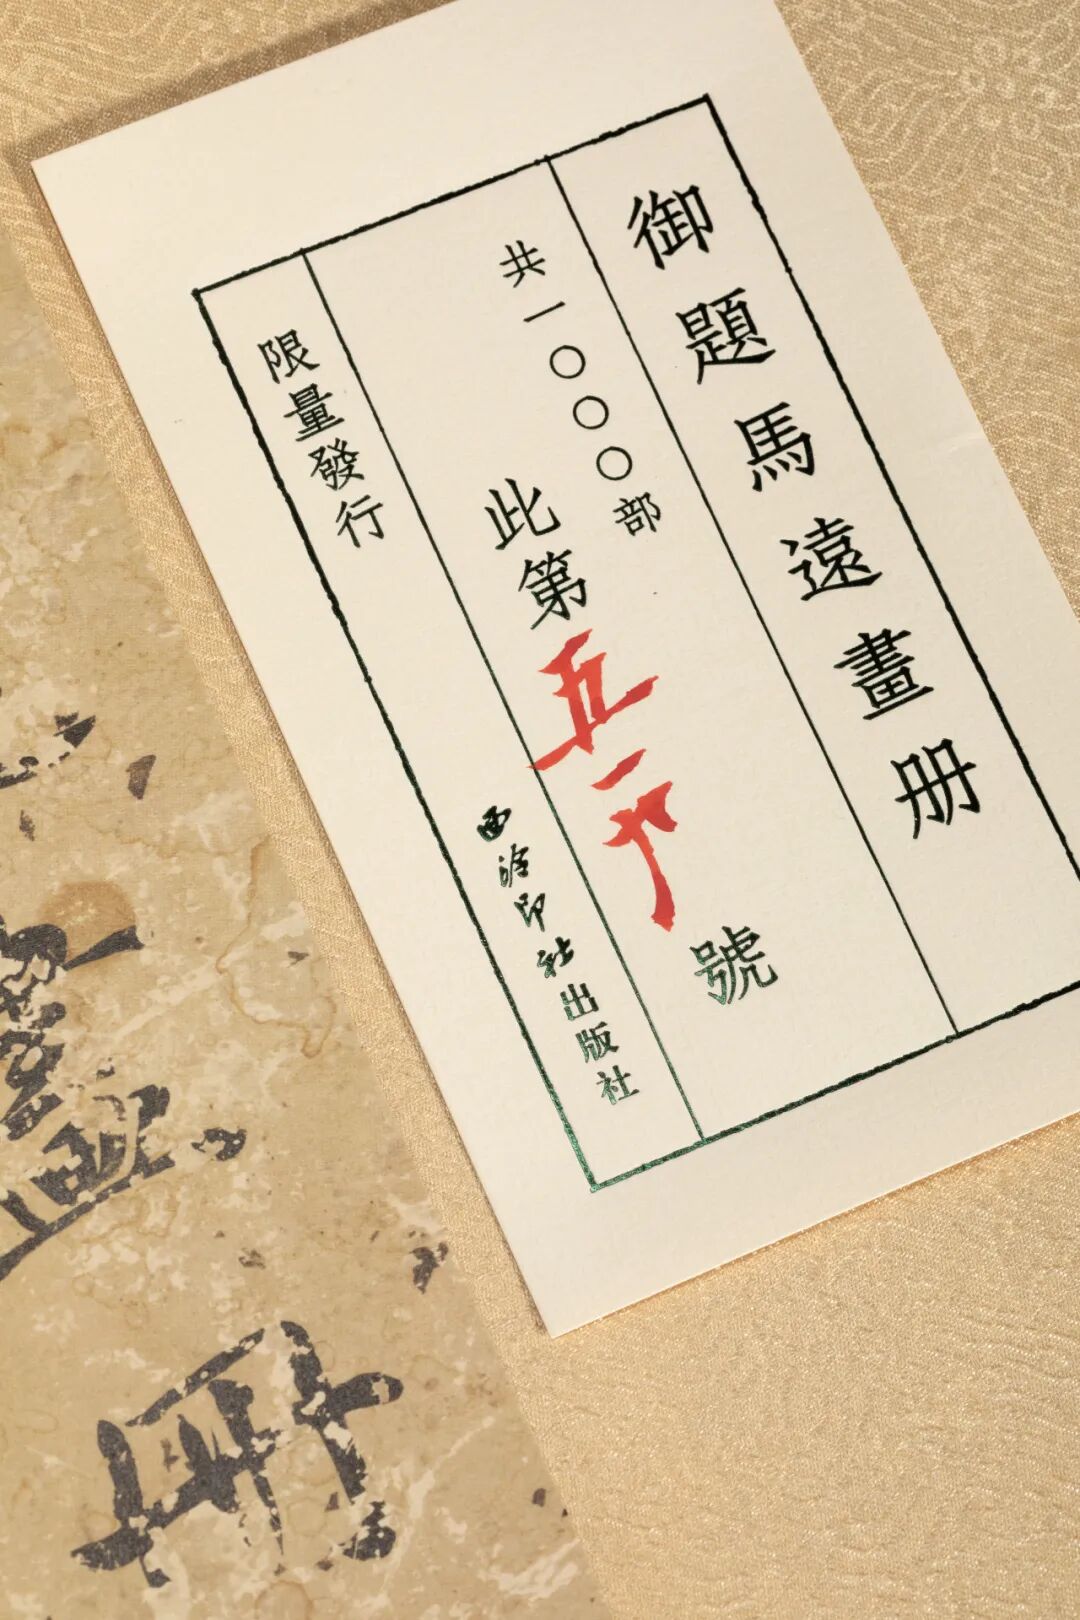 御題馬遠畫册
共一〇〇〇部
此第五號
限量發行 西泠印社出版社
畫冊